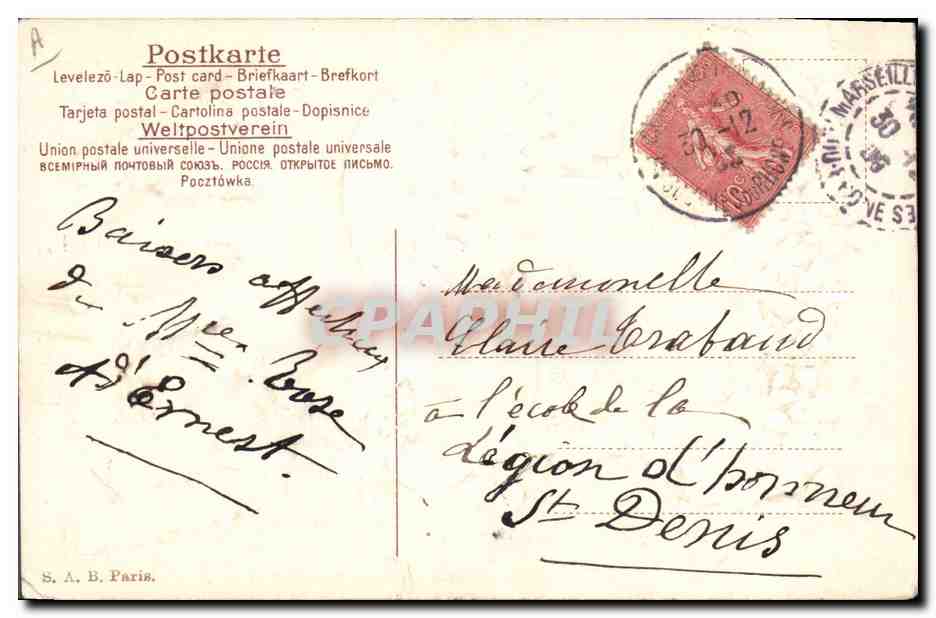 A
Postkarte
Levelező-Lap - Post card - Briefkaart - Brefkort
Carte postale
Tarjeta postal - Cartolina postale - Dopisnice
Weltpostverein
Union postale universelle - Unione postale universale
ВСЕМІРНЫЙ ПОЧТОВЫЙ СОЮЗЪ. РОССІЯ. ОТКРЫТОЕ ПИСЬМО.
Pocztówka.
30 -12
MARSEILLE
30
Baisers affectueux
de Mme Rose
et d'Ernest.
Mademoiselle
Claire Trabaud
à l'école de la
Légion d'honneur
St Denis
CPAPHIL
S. A. B. Paris.